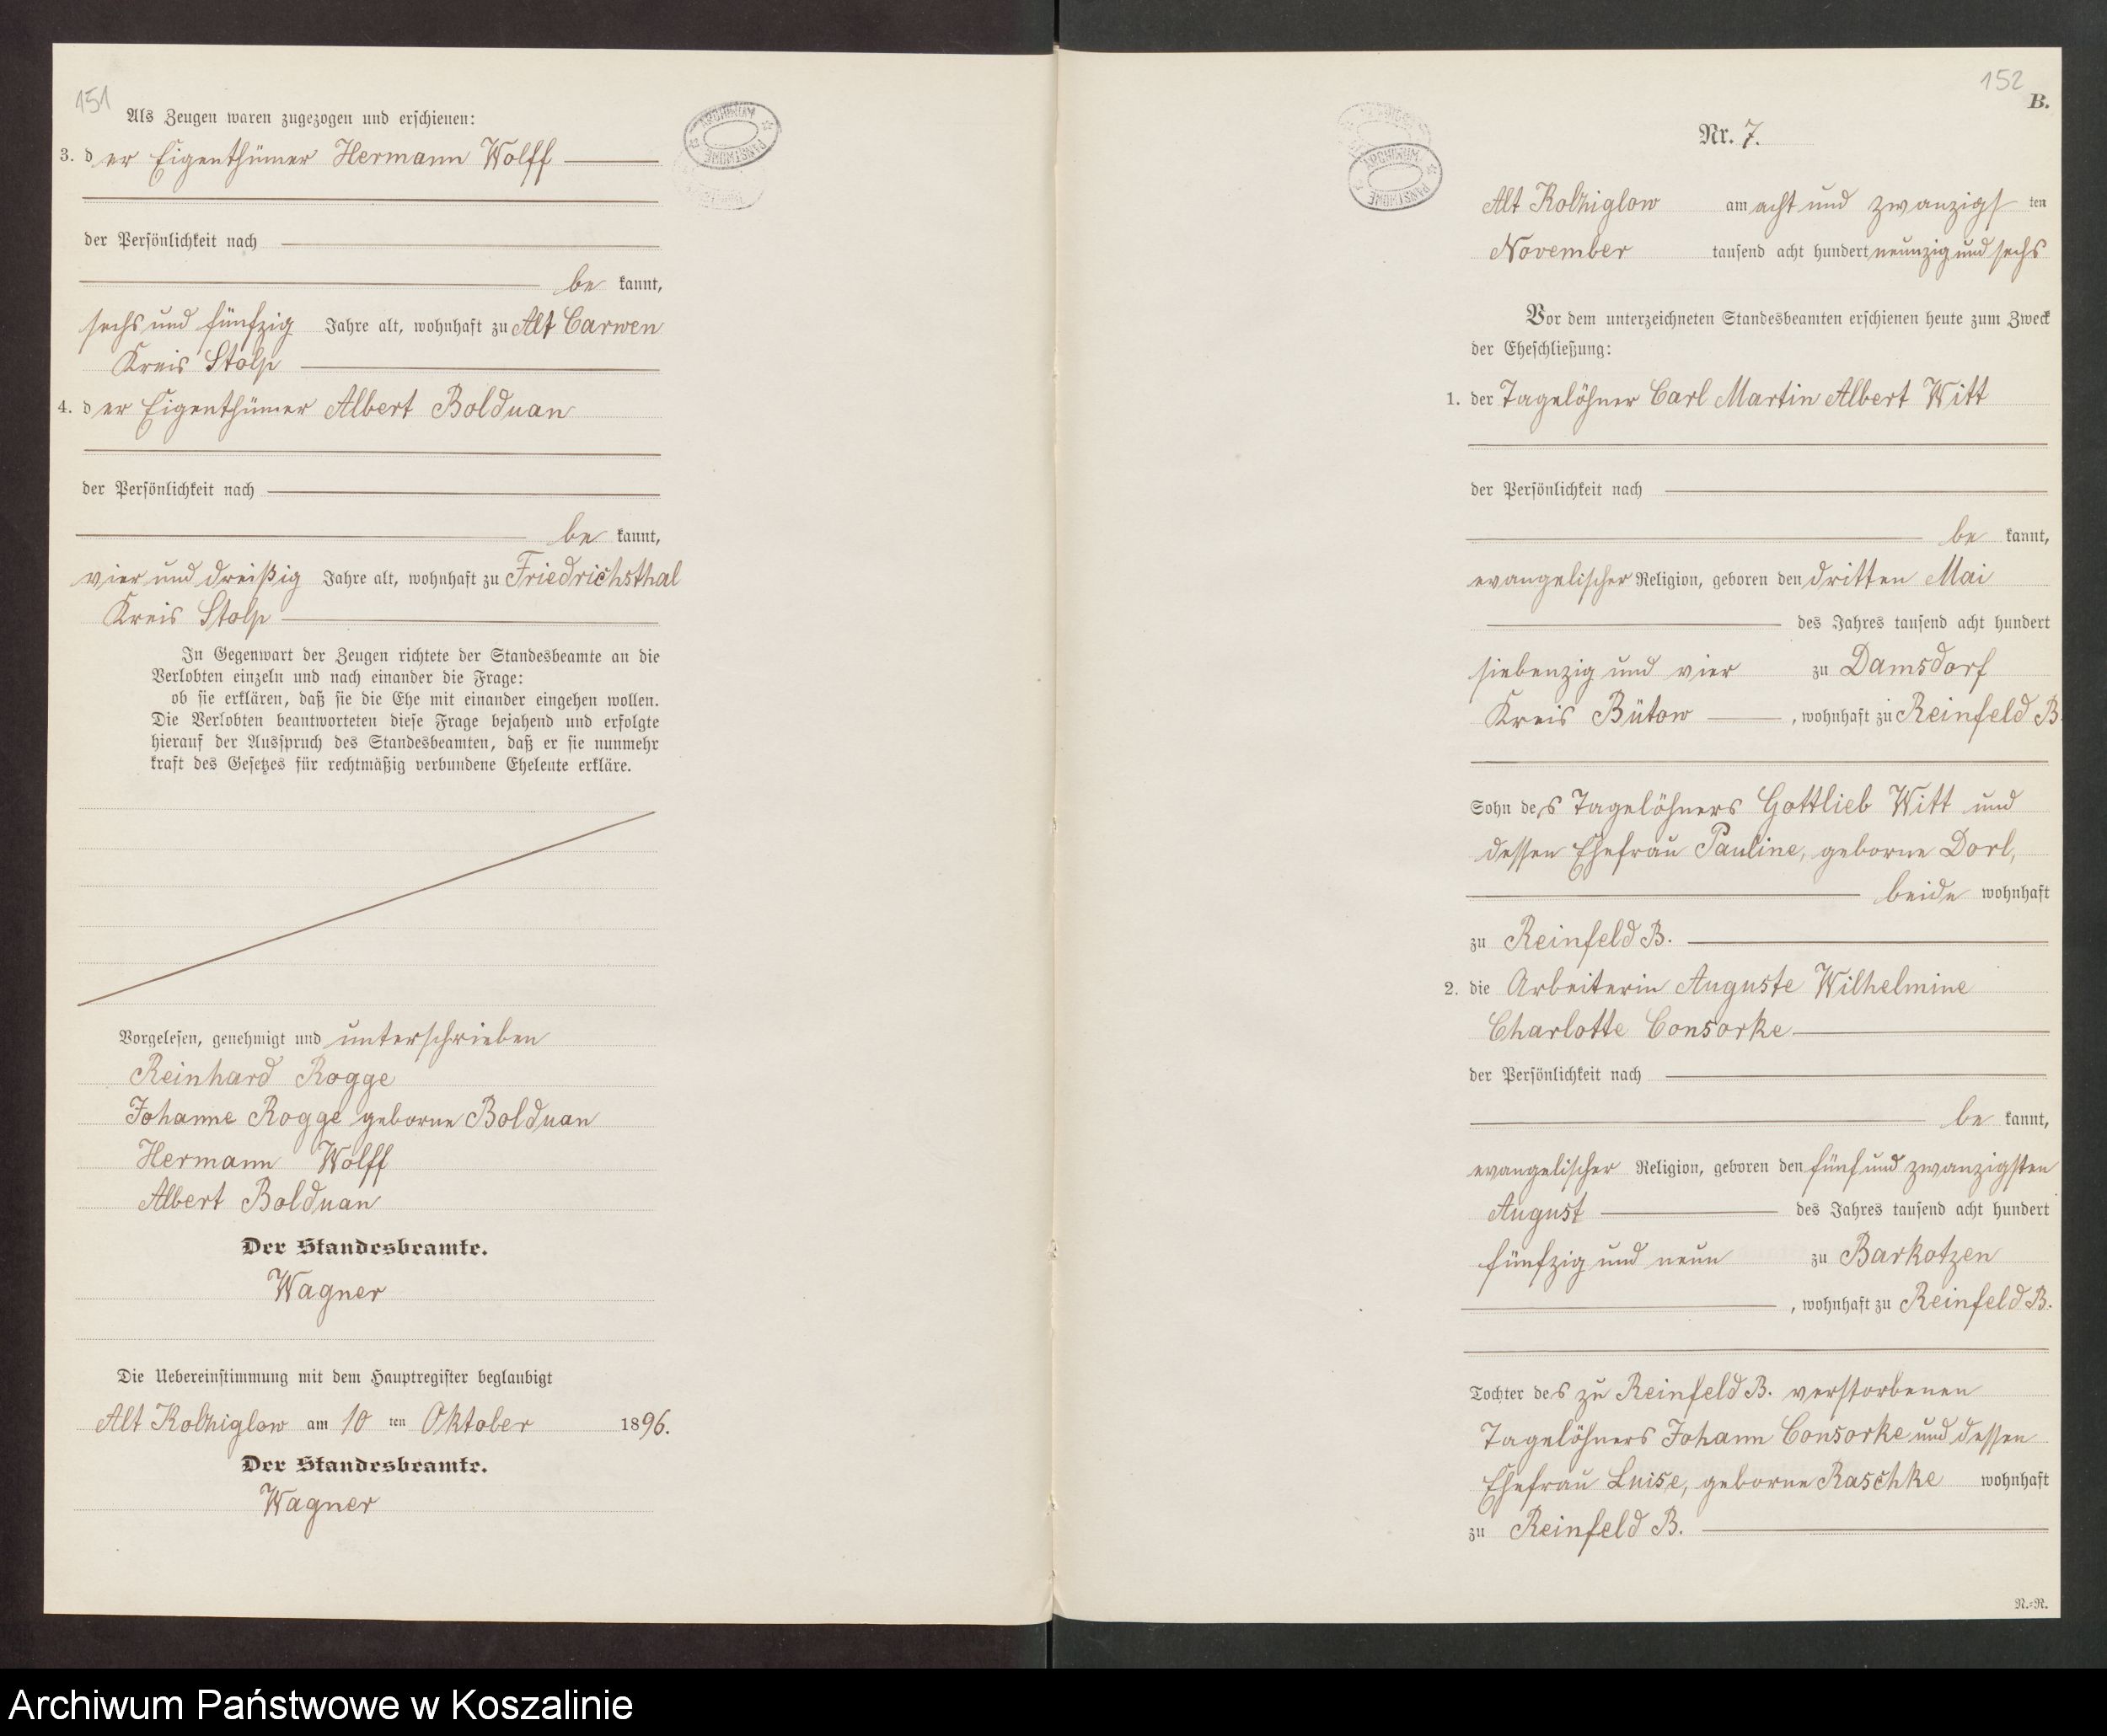 151
Als Zeugen waren zugezogen und erschienen:
3. der Eigenthümer Hermann Wolff
der Persönlichkeit nach
be kannt,
sechs und fünfzig Jahre alt, wohnhaft zu Alt Carwen
Kreis Stolp
4. der Eigenthümer Albert Bolduan
der Persönlichkeit nach
be kannt,
vier und dreißig Jahre alt, wohnhaft zu Friedrichsthal
Kreis Stolp
In Gegenwart der Zeugen richtete der Standesbeamte an die
Verlobten einzeln und nach einander die Frage:
ob sie erklären, daß sie die Ehe mit einander eingehen wollen.
Die Verlobten beantworteten diese Frage bejahend und erfolgte
hierauf der Ausspruch des Standesbeamten, daß er sie nunmehr
kraft des Gesetzes für rechtmäßig verbundene Eheleute erkläre.
Vorgelesen, genehmigt und unterschrieben
Reinhard Rogge
Johanne Rogge geborne Bolduan
Hermann Wolff
Albert Bolduan
Der Standesbeamte.
Wagner
Die Uebereinstimmung mit dem Hauptregister beglaubigt
Alt Kolziglow am 10 ten Oktober 1896.
Der Standesbeamte.
Wagner
ARCHIWUM PAŃSTWOWE
152
B.
Nr. 7.
ARCHIWUM PAŃSTWOWE
Alt Kolziglow am acht und zwanzigs ten
November tausend acht hundert neunzig und sechs
Vor dem unterzeichneten Standesbeamten erschienen heute zum Zweck
der Eheschließung:
1. der Tagelöhner Carl Martin Albert Witt
der Persönlichkeit nach
be kannt,
evangelischer Religion, geboren den dritten Mai
des Jahres tausend acht hundert
siebenzig und vier zu Damsdorf
Kreis Bütow, wohnhaft zu Reinfeld B.
Sohn des Tagelöhners Gottlieb Witt und
dessen Ehefrau Pauline, geborne Dorl,
beide wohnhaft
zu Reinfeld B.
2. die Arbeiterin Auguste Wilhelmine
Charlotte Consorke
der Persönlichkeit nach
be kannt,
evangelischer Religion, geboren den fünf und zwanzigsten
August des Jahres tausend acht hundert
fünfzig und neun zu Barkotzen
, wohnhaft zu Reinfeld B.
Tochter des zu Reinfeld B. verstorbenen
Tagelöhners Johann Consorke und dessen
Ehefrau Luise, geborne Raschke wohnhaft
zu Reinfeld B.
N.=N.
Archiwum Państwowe w Koszalinie